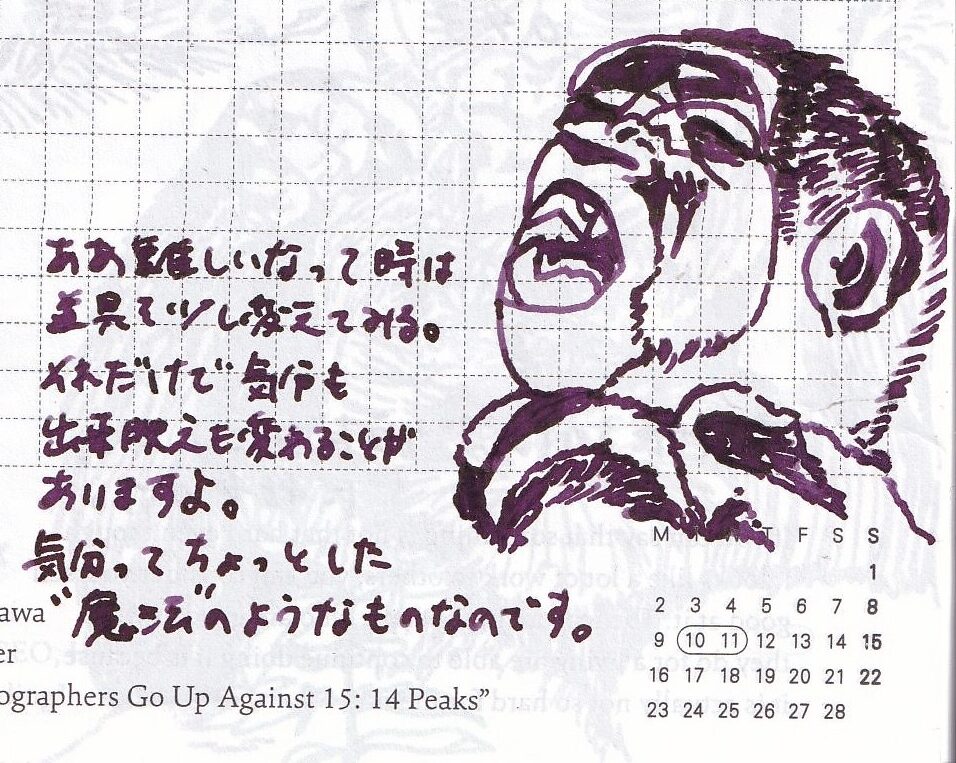 ああ難しいなって時は
道具で少し変えてみる。
それだけで気分も
出来映えも変わることが
ありますよ。
気分ってちょっとした
"魔法"のようなものなのです。
awa
er
ographers Go Up Against 15: 14 Peaks”
M T W T F S S
1
2 3 4 5 6 7 8
9 10 11 12 13 14 15
16 17 18 19 20 21 22
23 24 25 26 27 28